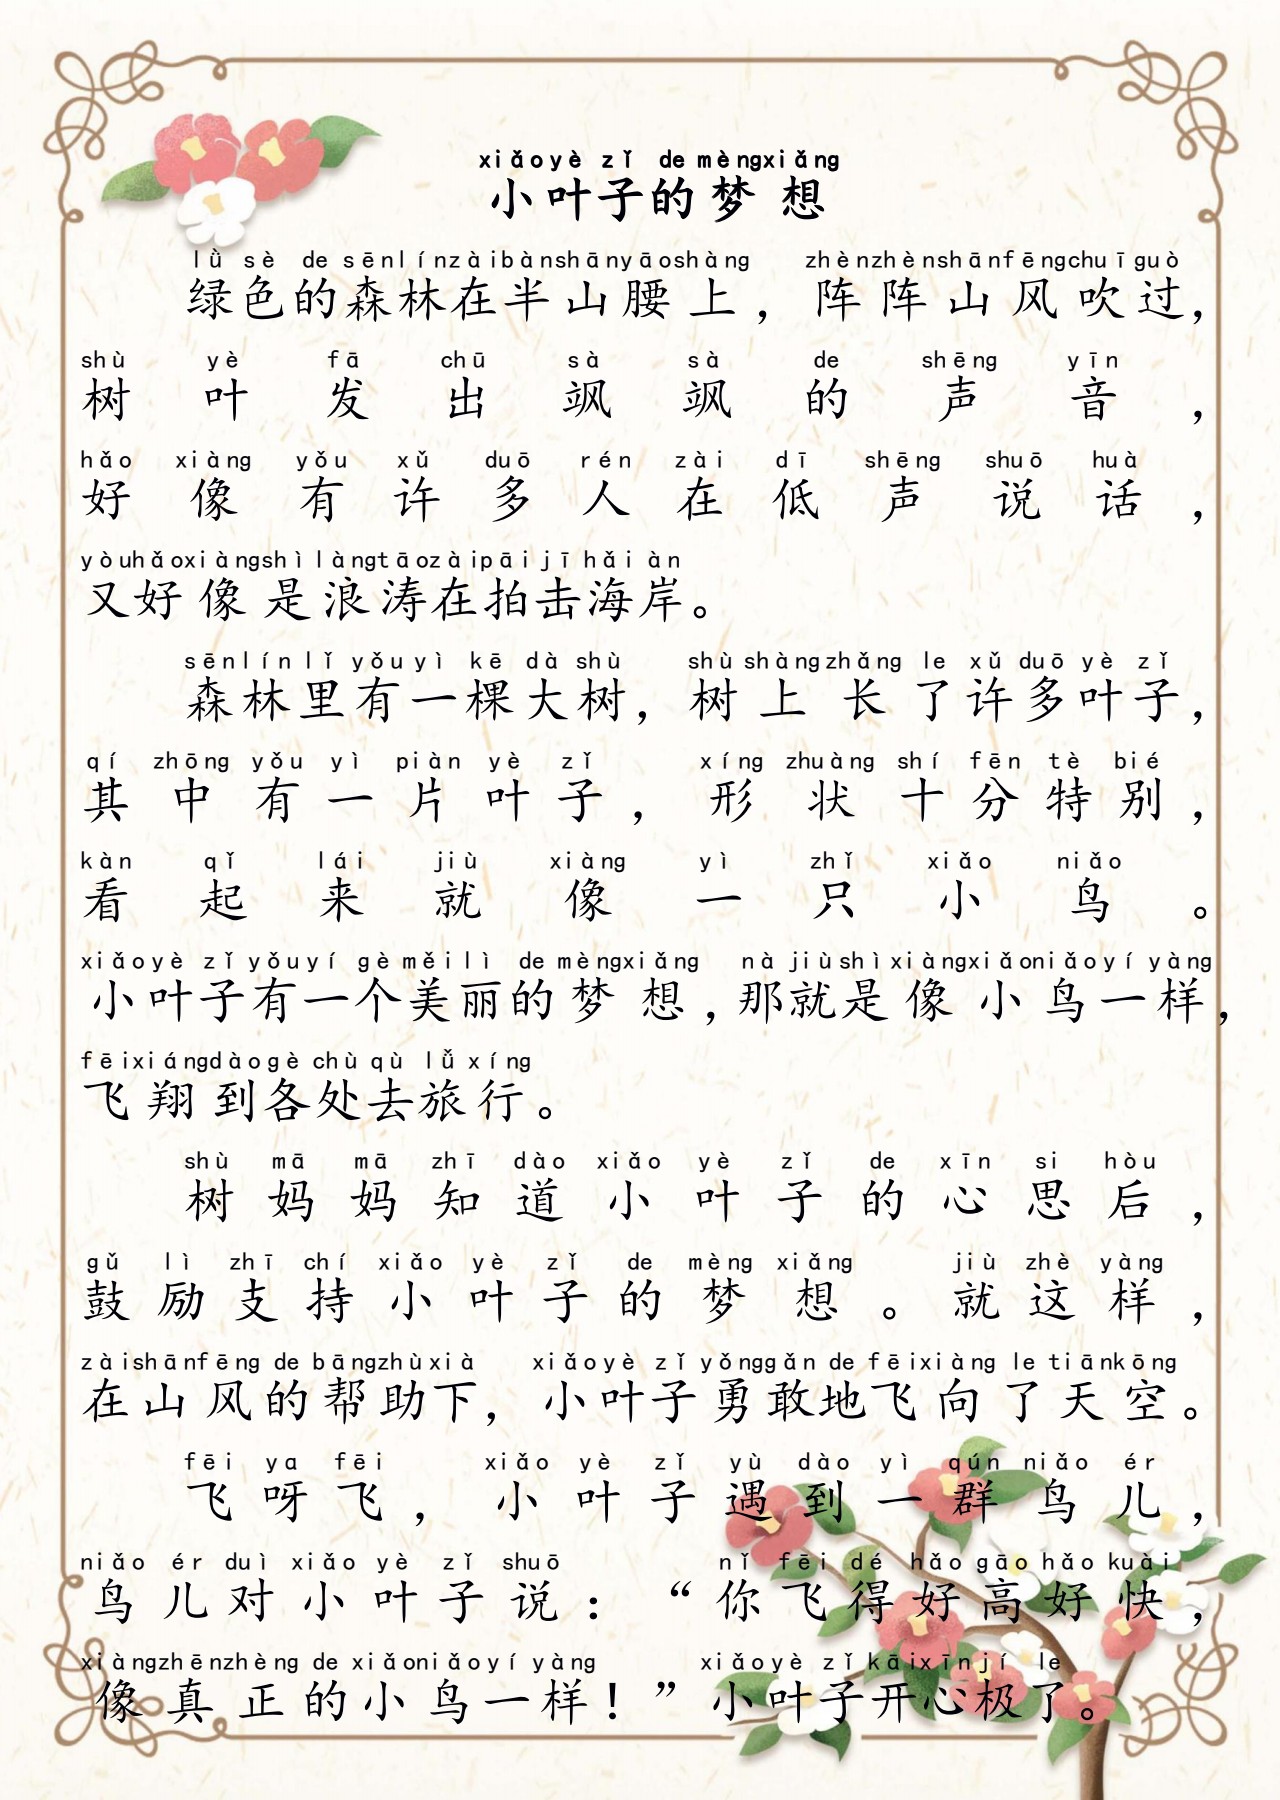 xiǎo yè zǐ de mèng xiǎng
小叶子的梦想
lǜ sè de sēn lín zài bàn shān yāo shàng zhèn zhèn shān fēng chuī guò
绿色的森林在半山腰上，阵阵山风吹过，
shù yè fā chū sà sà de shēng yīn
树叶发出飒飒的声音，
hǎo xiàng yǒu xǔ duō rén zài dī shēng shuō huà
好像有许多人在低声说话，
yòu hǎo xiàng shì làng tāo zài pāi jī hǎi àn
又好像是浪涛在拍击海岸。
sēn lín lǐ yǒu yì kē dà shù shù shàng zhǎng le xǔ duō yè zǐ
森林里有一棵大树，树上长了许多叶子，
qí zhōng yǒu yì piàn yè zǐ xíng zhuàng shí fēn tè bié
其中有一片叶子，形状十分特别，
kàn qǐ lái jiù xiàng yì zhǐ xiǎo niǎo
看起来就像一只小鸟。
xiǎo yè zǐ yǒu yí gè měi lì de mèng xiǎng nà jiù shì xiàng xiǎo niǎo yí yàng
小叶子有一个美丽的梦想，那就是像小鸟一样，
fēi xiáng dào gè chù qù lǚ xíng
飞翔到各处去旅行。
shù mā mā zhī dào xiǎo yè zǐ de xīn si hòu
树妈妈知道小叶子的心思后，
gǔ lì zhī chí xiǎo yè zǐ de mèng xiǎng jiù zhè yàng
鼓励支持小叶子的梦想。就这样，
zài shān fēng de bāng zhù xià xiǎo yè zǐ yǒng gǎn de fēi xiàng le tiān kōng
在山风的帮助下，小叶子勇敢地飞向了天空。
fēi ya fēi xiǎo yè zǐ yù dào yì qún niǎo ér
飞呀飞，小叶子遇到一群鸟儿，
niǎo ér duì xiǎo yè zǐ shuō nǐ fēi dé hǎo gāo hǎo kuài
鸟儿对小叶子说：“你飞得好高好快，
xiàng zhēn zhèng de xiǎo niǎo yí yàng xiǎo yè zǐ kāi xīn jí le
像真正的小鸟一样！”小叶子开心极了。